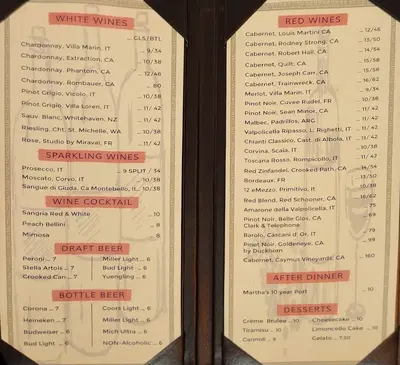 WHITE WINES
GLS/BTL
Chardonnay, Villa Marin, IT ... 9/34
Chardonnay, Extraction, CA ... 10/38
Chardonnay, Phantom, CA ... 12/46
Chardonnay, Rombauer, CA ... 80
Pinot Grigio, Vicolo, IT ... 10/38
Pinot Grigio, Villa Loren, IT ... 11/42
Sauv. Blanc, Whitehaven, NZ ... 11/42
Riesling, Cht. St. Michelle, WA ... 10/38
Rose, Studio by Miraval, FR ... 11/42
SPARKLING WINES
Prosecco, IT ... 9 SPLIT / 34
Moscato, Corvo, IT ... 10/38
Sangue di Giuda, Ca Montebello, IT.. 10/38
WINE COCKTAIL
Sangria Red & White ... 10
Peach Bellini ... 8
Mimosa ... 8
DRAFT BEER
Peroni ... 7 Miller Light ... 6
Stella Artois ... 7 Bud Light ... 6
Crooked Can ... 7 Yuengling ... 6
BOTTLE BEER
Corona ... 7 Coors Light ... 6
Heineken ... 7 Miller Light ... 6
Budweiser ... 6 Mich Ultra ... 6
Bud Light ... 6 NON-Alcoholic ... 6
RED WINES
Cabernet, Louis Martini CA ... 12/46
Cabernet, Rodney Strong, CA ... 13/50
Cabernet, Robert Hall, CA ... 14/54
Cabernet, Quilt, CA ... 15/58
Cabernet, Joseph Carr, CA ... 15/58
Cabernet, Trainwreck, CA ... 16/62
Merlot, Villa Marin, IT ... 9/34
Pinot Noir, Cuvee Rudel, FR ... 10/38
Pinot Noir, Sean Minor, CA ... 11/42
Malbec, Padrillos, ARG ... 11/42
Valpolicella Ripasso, L. Righetti, IT ... 11/42
Chianti Classico, Cast. di Albola, IT ... 11/42
Corvina, Scaia, IT ... 10/38
Toscana Rosso, Rompicollo, IT ... 11/42
Red Zinfandel, Crooked Path, CA ... 14/54
Bordeaux, FR ... 13/50
12 eMezzo, Primitivo, IT ... 10/38
Red Blend, Red Schooner, CA ... 16/62
Amarone della Valpolicella, IT ... 75
Pinot Noir, Belle Glos, CA ... 69
Clark & Telephone
Barolo, Cascani d' Or, IT ... 69
Pinot Noir, Goldeneye, CA ... 99
by Duckhorn
Cabernet, Caymus Vineyards, CA ... 160
AFTER DINNER
Martha's 10 year Port ... 10
DESSERTS
Crème Brulee ... 10 Cheesecake ... 10
Tiramisu ... 10 Limoncello Cake ... 10
Cannoli ... 9 Gelato ... 7.50